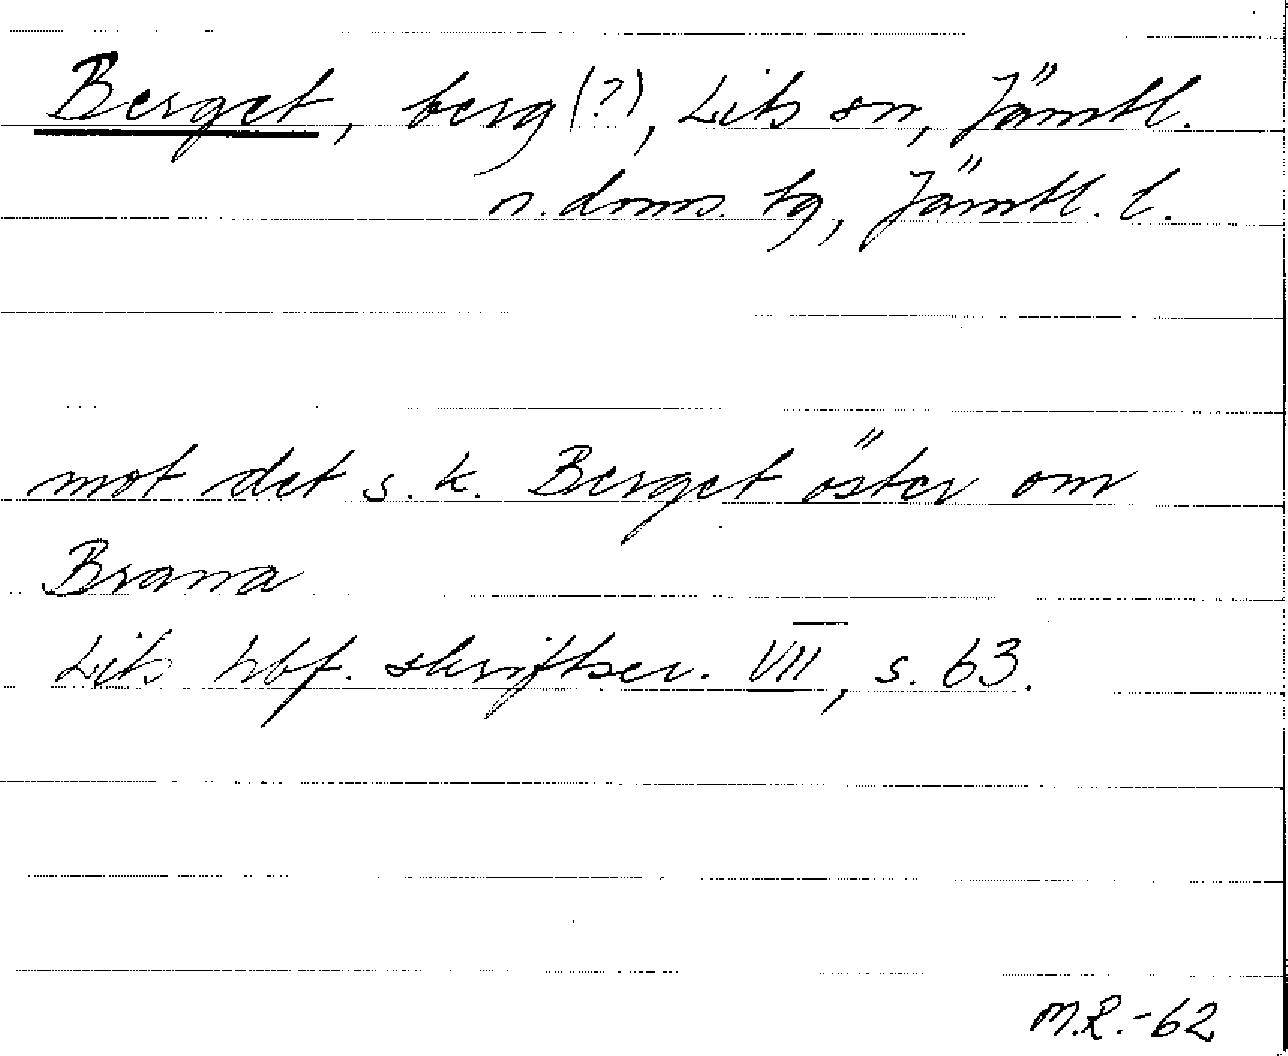 Berget, berg (?), Lits sn, Jämtl.
n. doms. tg, Jämtl. l.
mot det s. k. Berget öster om
Brana
Lits hbf. skriftser. VII, s. 63.
M.R.-62